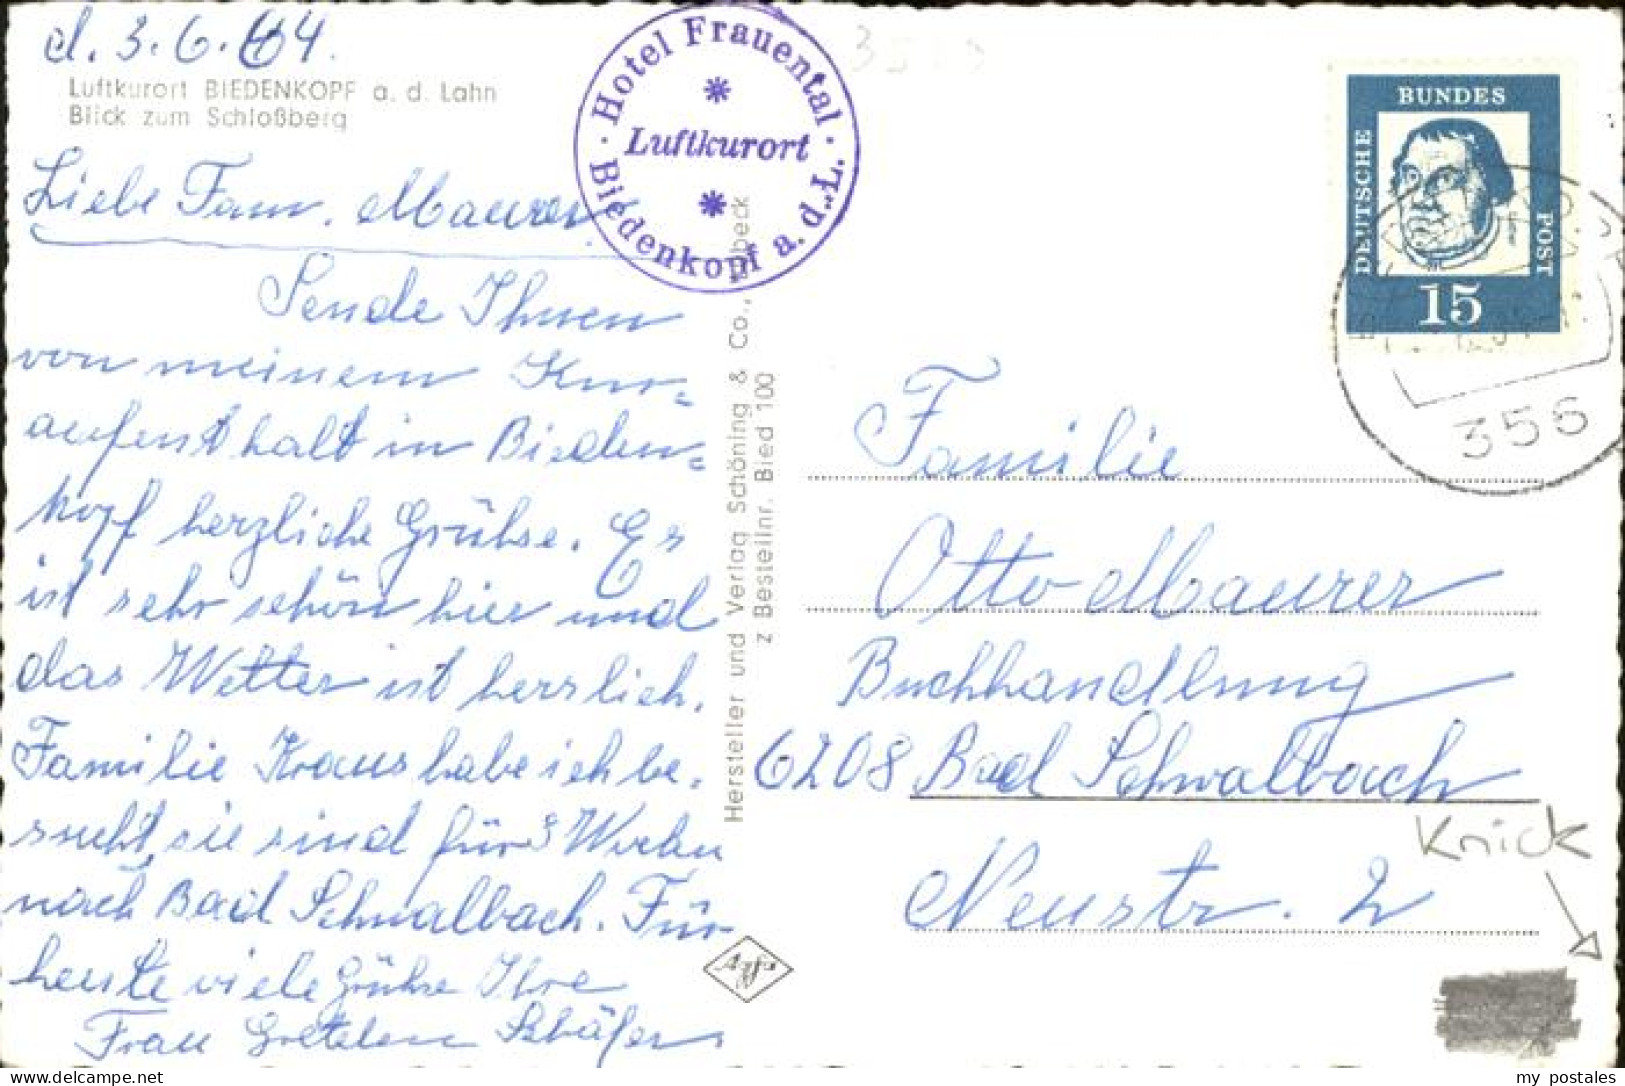 d. 3.6.64.
Luftkurort BIEDENKOPF a. d. Lahn
Blick zum Schloßberg
Liebe Fam. Maurer.
Sende Ihnen
von meinem Kur=
aufenthalt in Bieden=
kopf herzliche Grühse. Es
ist sehr schön hier und
das Wetter ist herrlich.
Familie Kraus habe ich be.
sucht, sie sind für 3 Wochen
nach Bad Schwalbach. Für
heute viele Grühse Ihre
Frau Gretchen Schäfer
· Hotel Frauental ·
Luftkurort
Biedenkopf a. d. L.
Hersteller und Verlag Schöning & Co., Lübeck
z Bestellnr. Bied 100
DEUTSCHE
BUNDES
POST
15
356
Familie
Otto Maurer
Buchhandlung
6208 Bad Schwalbach
Neustr. 2
Knick
my postales